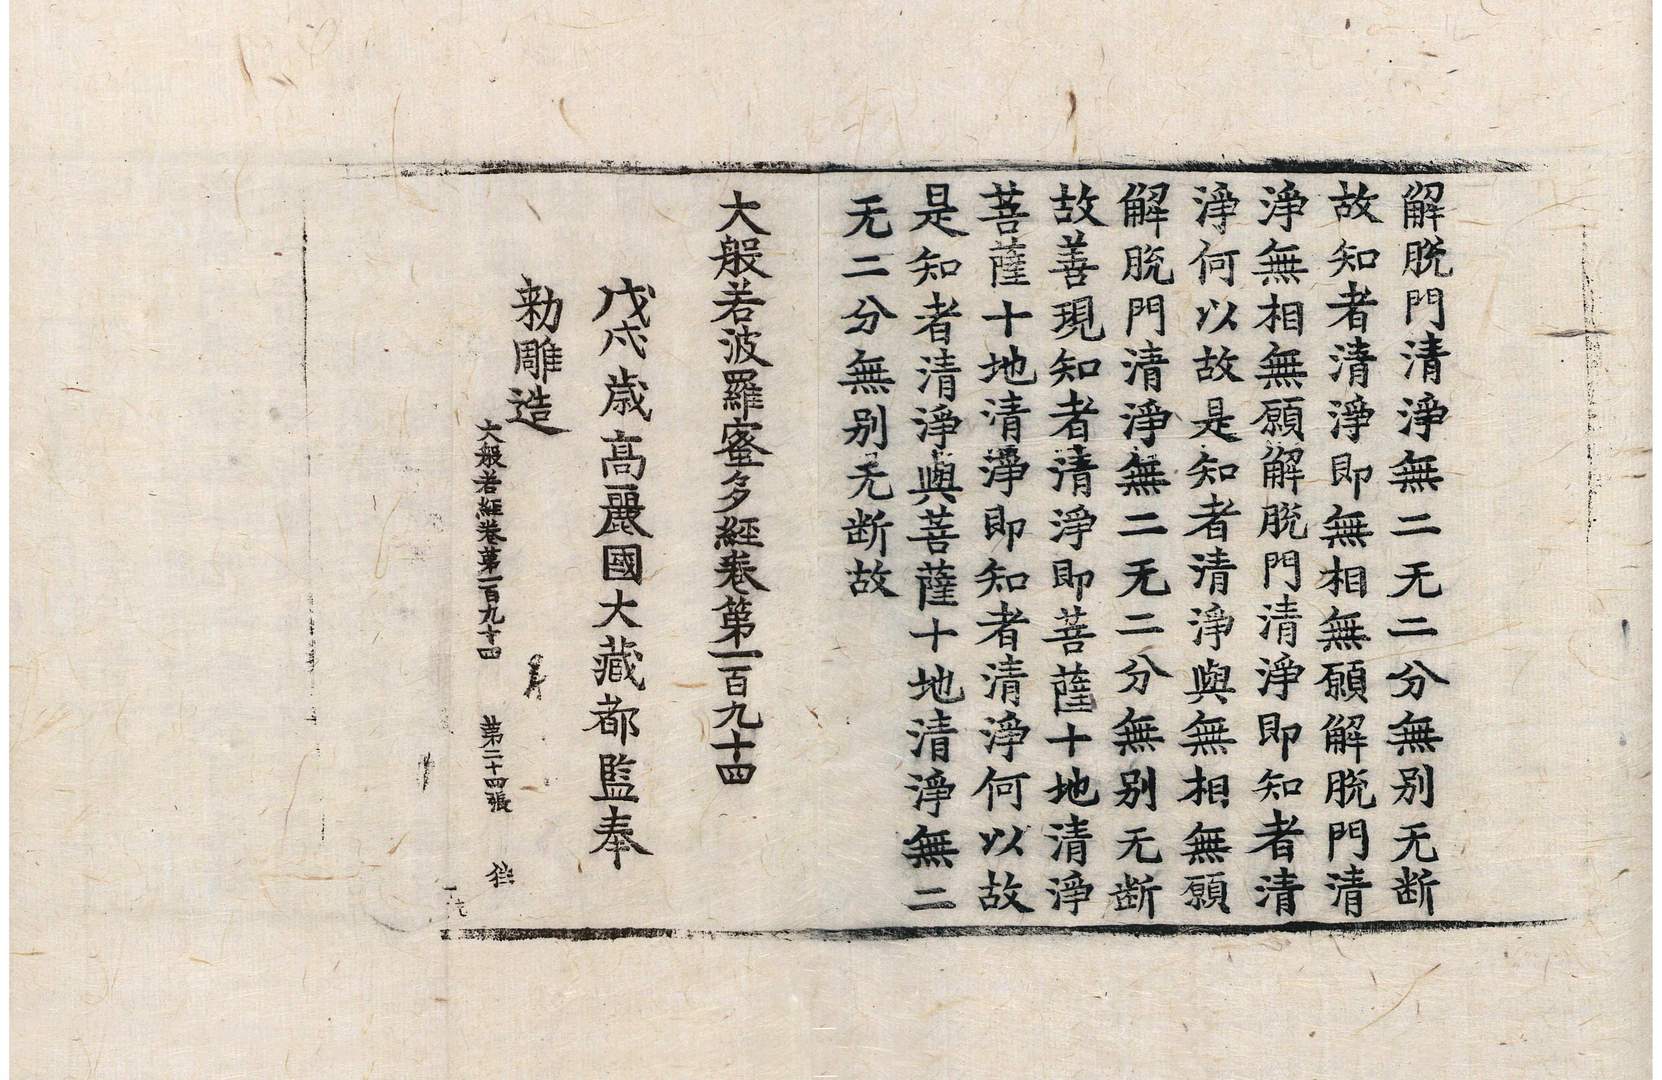 解脫門清淨無二无二分無別无斷
故知者清淨即無相無願解脫門清
淨無相無願解脫門清淨即知者清
淨何以故是知者清淨與無相無願
解脫門清淨無二无二分無別无斷
故善現知者清淨即菩薩十地清淨
菩薩十地清淨即知者清淨何以故
是知者清淨與菩薩十地清淨無二
无二分無別无斷故
大般若波羅蜜多經卷第一百九十四
戊戌歲高麗國大藏都監奉
勑雕造
大般若經卷第一百九十四 第二十四張